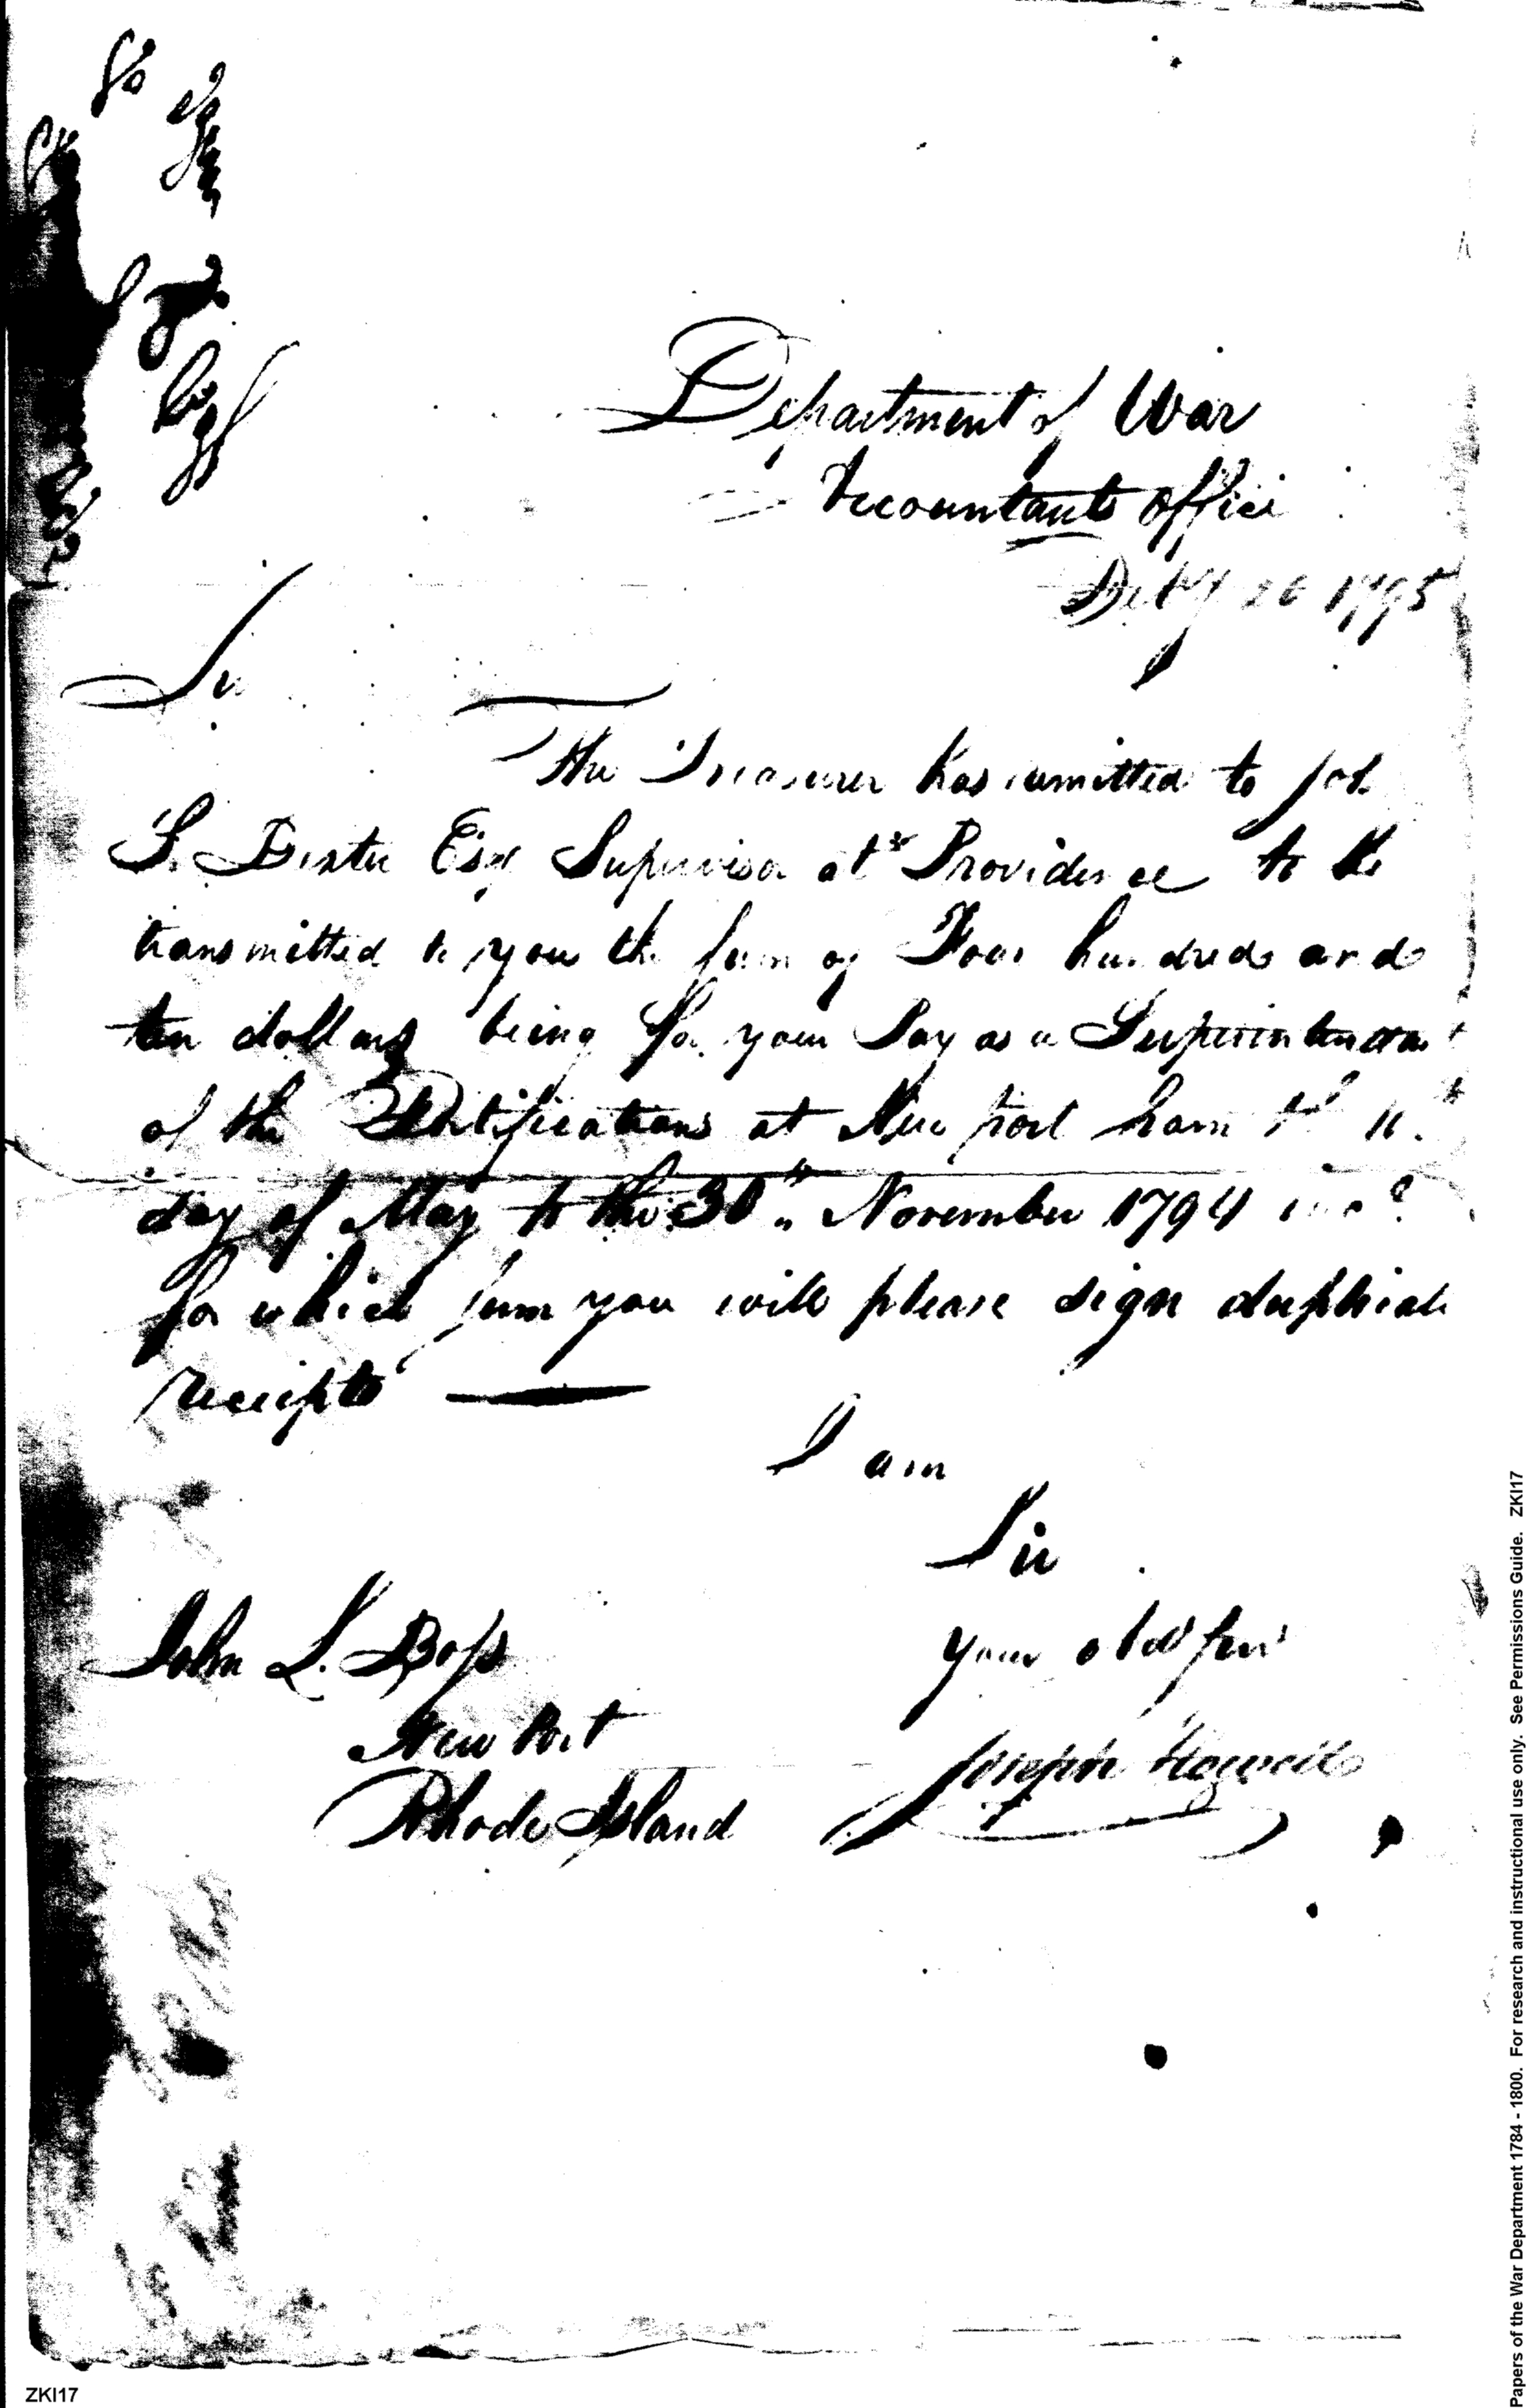 Department of War
Accountants office
26 1795
Sir
The Treasurer has remitted to
S. Dexter Esqr Supervisor at Providence to be
transmitted to you the sum of Four hundred and
ten dollars being for your Pay as a Superintendant
of the Fortifications at New port from
day of May to the 30th November 1794
for which sum you will please sign duplicate
receipts
I am
Sir
John L. Boss
your obed serv
New Port
Joseph Howell
Rhode Island
Papers of the War Department 1784 - 1800. For research and instructional use only. See Permissions Guide. ZKI17
ZKI17